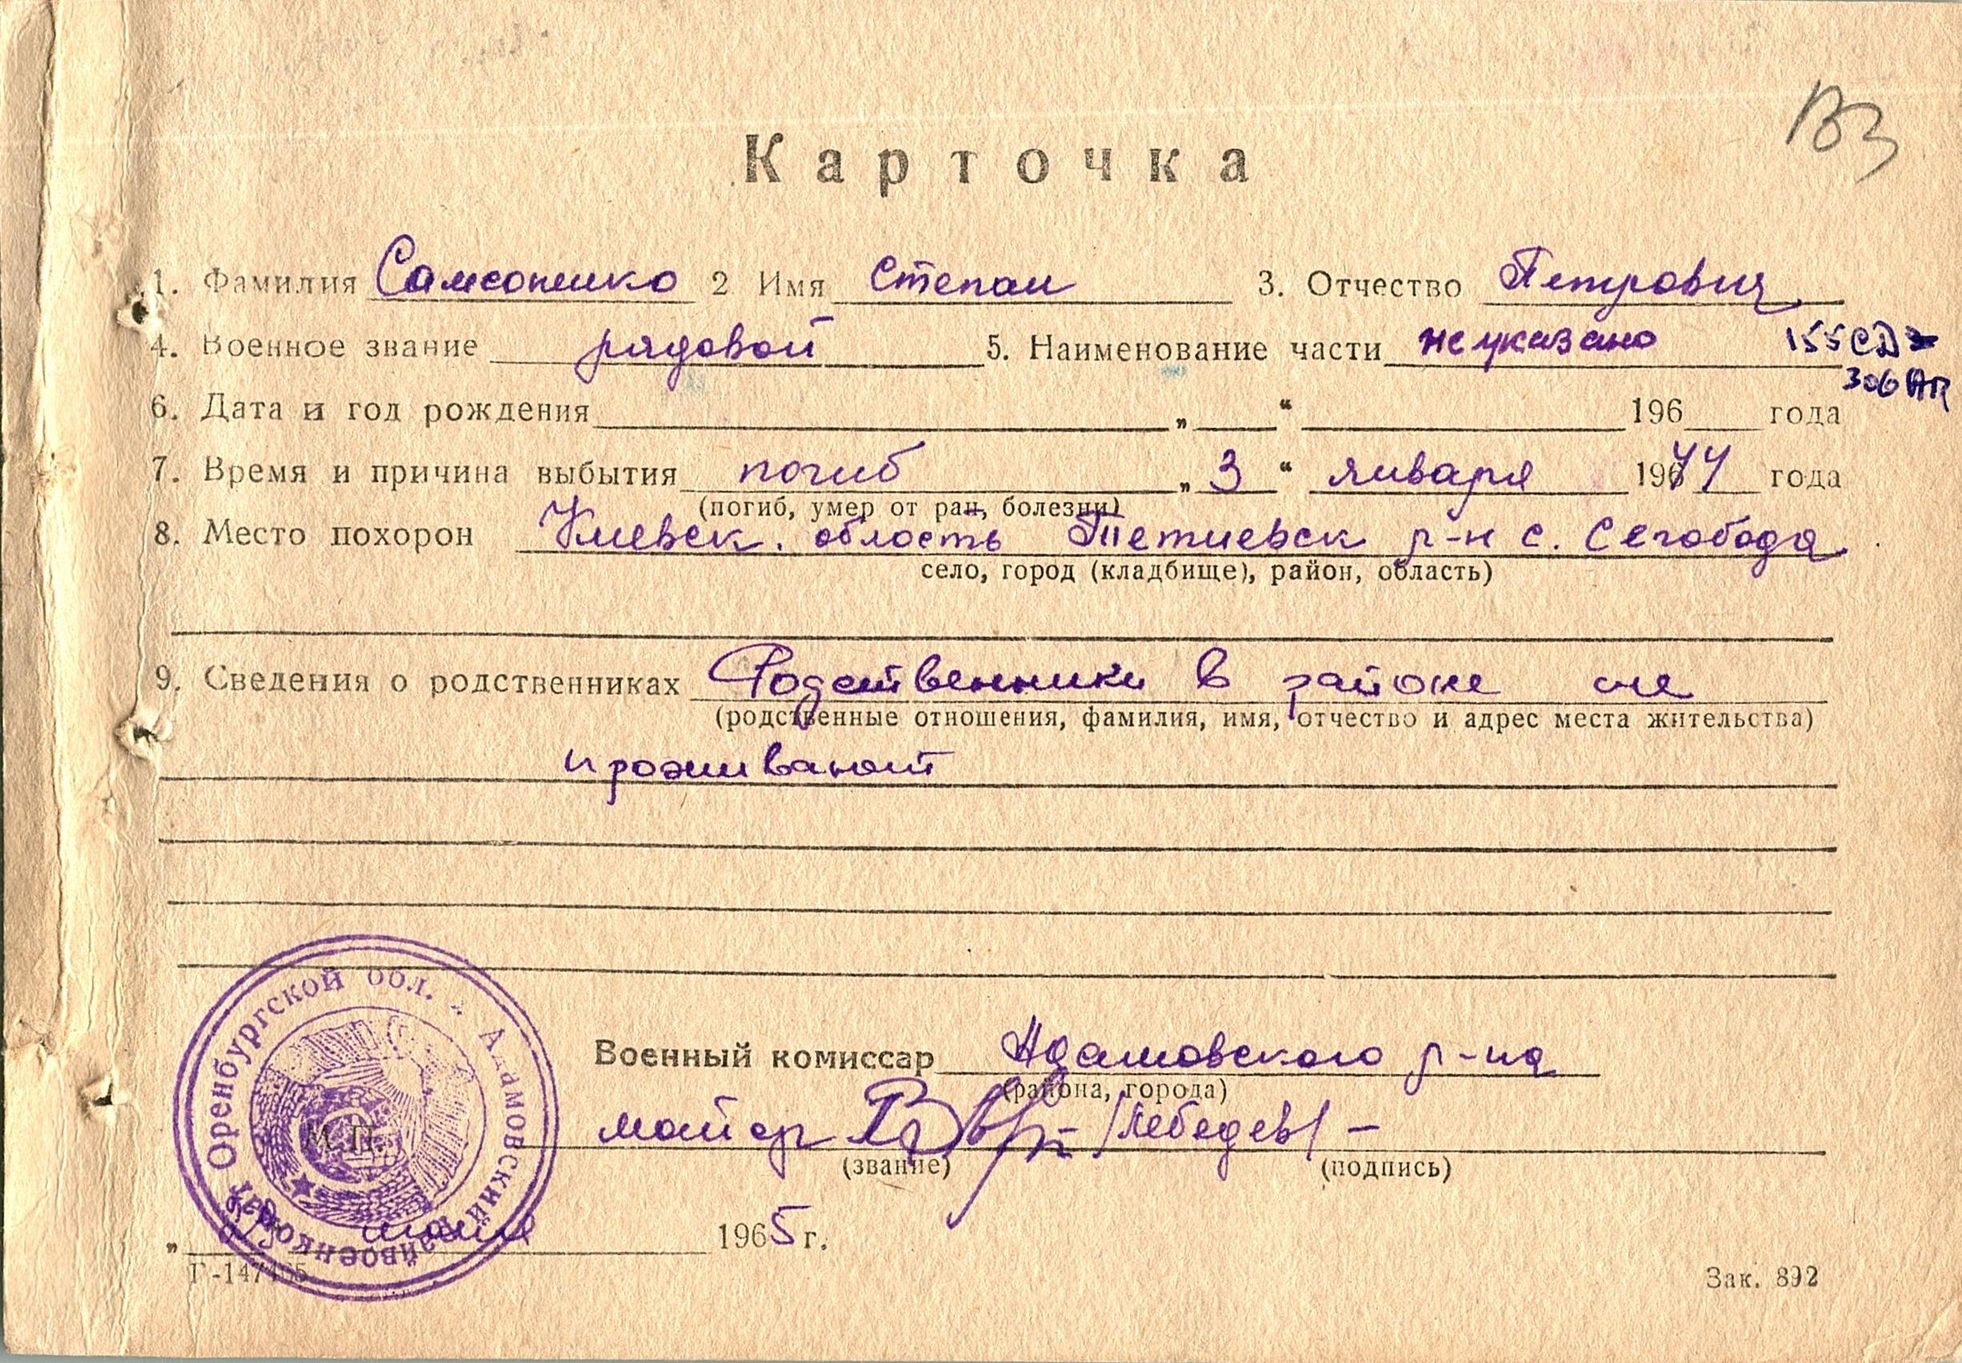 ВЗ
Карточка
1. Фамилия Самсоненко 2 Имя Степан 3. Отчество Петрович
4. Военное звание рядовой 5. Наименование части не указано 155 СД
306 АП
6. Дата и год рождения „ “ 196 года
7. Время и причина выбытия погиб „ 3 “ января 1944 года
(погиб, умер от ран, болезни)
8. Место похорон Киевск. область Тетиевск р-н с. Слобода
село, город (кладбище), район, область)
9. Сведения о родственниках Родственники в районе не
(родственные отношения, фамилия, имя, отчество и адрес места жительства)
проживают
Военный комиссар Адамовского р-на
(района, города)
М. П. майор /Лебедев/ –
(звание) (подпись)
„ 1965 г.
Зак. 892
Оренбургской обл. Адамовский райвоенкомат